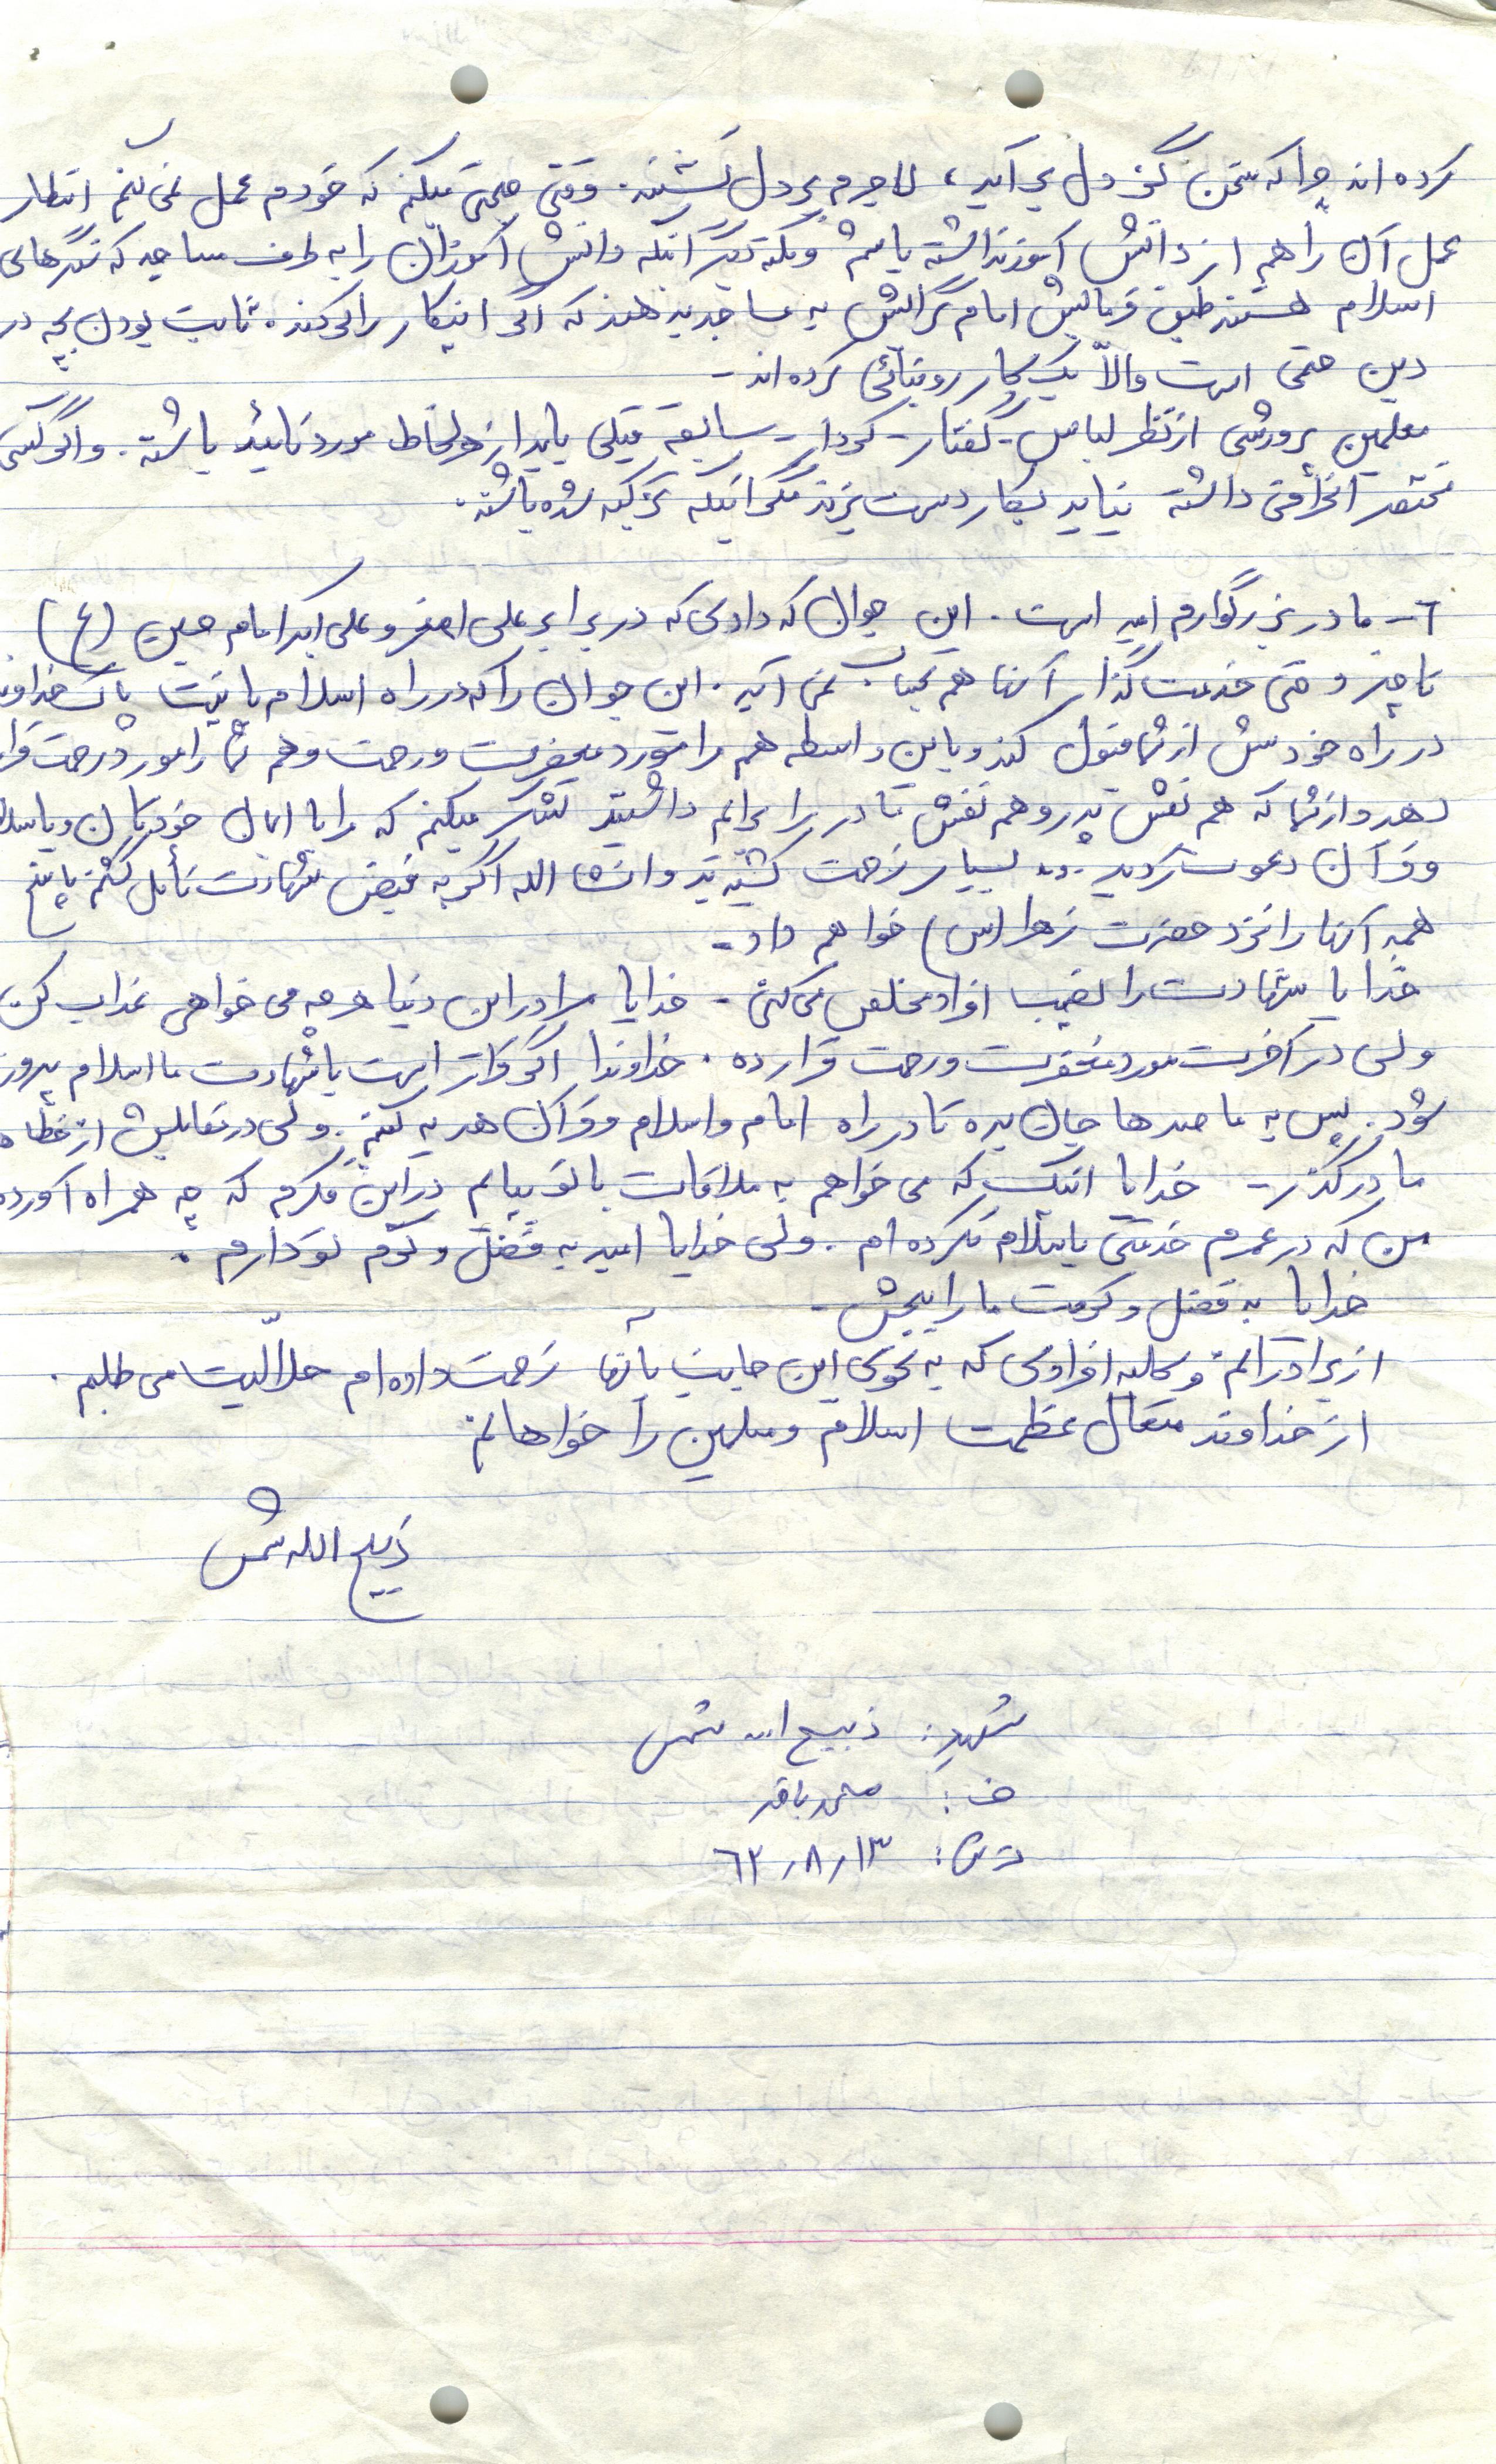 کرده اند چرا که سخن کز دل برآید، لاجرم بر دل نشیند. وقتی صحبتی میکنم که خودم عمل نمی کنم انتظار
عمل آن را هم از دانش آموز نداشته باشم و نکته دیگر آنکه دانش آموزان را به طرف مساجد که سنگرهای
اسلام هستند طبق فرمایش امام گرایش به مساجد بدهند که اگر اینکار را کردند. ثابت بودن بچه در
دین حتمی است والاّ یک کار روبنائی کرده اند-
معلمین پرورشی از نظر لباس- گفتار- کردار- سابقه قبلی باید از هر لحاظ مورد تایید باشند. و اگر کسی
مختصر انحرافی داشته نباید بکار دست بزند مگر اینکه تزکیه شده باشند.
٦- مادر بزرگوارم امید است. این جوان که دادی که در برابر علی اصغر و علی اکبر امام حسین (ع)
ناچیز و حتی خدمت گذار آنها هم بحساب نمی آید. این جوان را که در راه اسلام با نیت پاک خداوند
در راه خودش از شما قبول کند و باین واسطه هم مرا مورد مغفرت و رحمت و هم شما را مورد رحمت قرار
دهد و از شما که هم نقش پدر و هم نقش مادر را برایم داشتید تشکر میکنم که مرا با ایمان خودتان و باسلام
و قرآن دعوت کردید. بسیار زحمت کشیدید و انشا الله اگر به فیض شهادت نائل گشتم پاسخ
همه آنها را نزد حضرت زهرا (س) خواهم داد-
خدایا شهادت را نصیب افراد مخلص می کنی- خدایا مرا در این دنیا هر چه می خواهی عذاب کن
ولی در آخرت مورد مغفرت و رحمت قرار ده. خداوندا اگر قرار است با شهادت ما اسلام پیروز
شود. پس به ما صدها جان بده تا در راه امام و اسلام و قرآن هدیه کنیم. ولی در مقابلش از خطاه
ما درگذر- خدایا اینک که می خواهم به ملاقات با تو بیایم در این فکرم که چه همراه آورده
من که در عمرم خدمتی باسلام نکرده ام. ولی خدایا امید به فضل و کرم تو دارم.
خدایا به فضل و کرمت ما را ببخش-
از برادرانم و کلیه افرادی که به نحوی این جانب بآنها زحمت داده ام حلالّیت می طلبم.
از خداوند متعال عظمت اسلام و مسلمین را خواهانم.
ذبیح الله شمس
شهید: ذبیح اله شمس
ف: محمد باقر
ت ش: ٦٢٫٨٫١٣